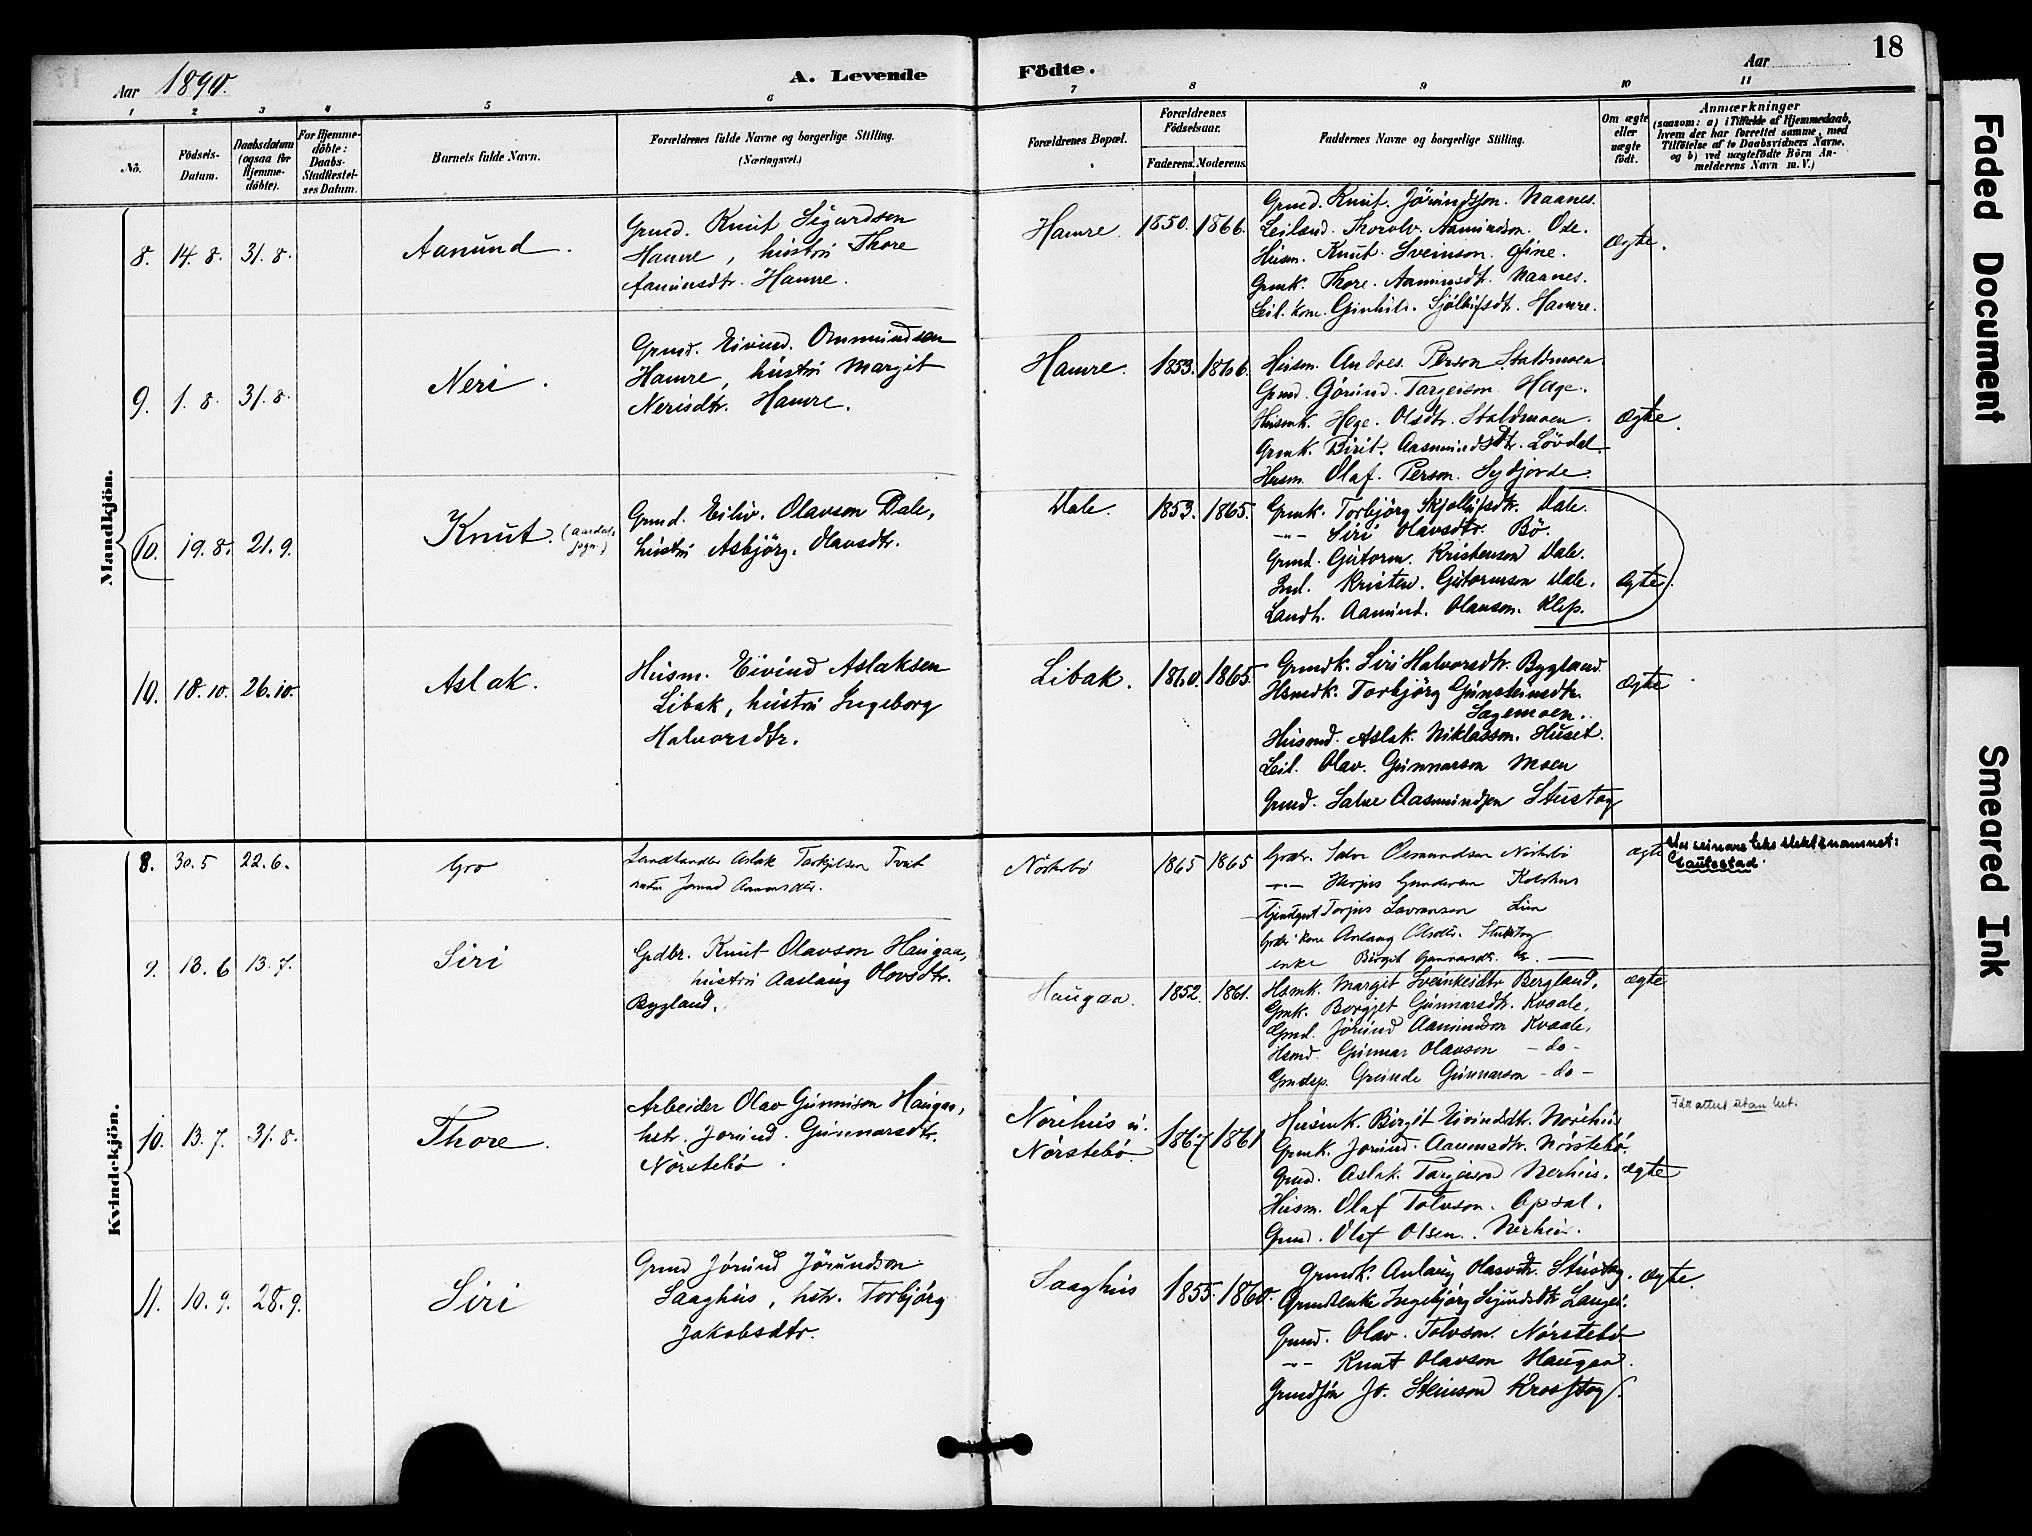 Aar 1890.
A. Levende
Födte.
Aar
18
1
2
3
4
5
6
7
8
9
10
11
No.
Födsels-
Datum.
Daabsdatum
(ogsaa for
Hjemme-
döbte).
For Hjemme-
döbte:
Daabs-
Stadfæstel-
ses Datum.
Barnets fulde Navn.
Forældrenes fulde Navne og borgerlige Stilling.
(Næringsvei.)
Forældrenes Bopæl.
Forældrenes
Födselsaar.
Faderens.
Moderens.
Faddernes Navne og borgerlige Stilling.
Om ægte
eller
uægte
födt.
Anmærkninger
(saasom: a) i Tilfælde af Hjemmedaab,
hvem der har forrettet samme, med
Tilföielse af to Daabsvidners Navne.
og b) ved uægtefödte Börn An-
melderens Navn m. V.)
Mandkjön.
8. 14. 8. 31. 8.
Aanund.
Grmd. Knut Sigurdson
Hamre, hustru Thore
Aanunsdtr. Hamre.
Hamre 1850. 1866.
Grmd. Knut. Jörundsson. Naanes.
Leiland. Thorolv. Aamundson. Ose.
Husm. Knut. Sveinson.
Grmk. Thore. Aanunsdt. Naanes.
Leil. kone. Gunhild. Sjölhifsdt. Hamre.
ægte.
9. 1. 8. 31. 8.
Neri.
Grmd. Eivind. Ommundsen
Hamre, hustru Margit
Nerisdtr. Hamre.
Hamre. 1853. 1866.
Husm. Andres Person Staldmoen.
Grmd. Görund. Targeison. Hage.
Husmk. Hege. Olsdtr. Staldmoen.
Grmk. Birit. Aasmundsdtr. Lövdal.
Husm. Olaf. Person. Sydjorde.
ægte.
10. 19. 8. 21. 9.
Knut. (Aardals
sogn.)
Grmd. Eiliv. Olavson Dale,
hustru Asbjörg. Olavsdtr.
Dale. 1853. 1865.
Grmk. Torbjörg Skjollifsdtr. Dale.
-"- Siri Olavsdtr. Bö.
Grmd. Gutorm. Kristenson Dale.
Ind. Kristen. Gutormson Dale.
Landh. Aamund. Olavson. Klep.
ægte.
10. 18. 10. 26. 10.
Aslak.
Husm. Eivind Aslaksen
Libak, hustru Ingeborg
Halvorsdtr.
Libak. 1860. 1865.
Grmdk. Siri Halvorsdtr. Bygland.
Hsmdk. Torbjörg Gunsteinsdtr.
Sagemoen.
Husmd. Aslak. Niklasson. Huset.
Leil. Olav. Gunnarson Moen
Grmd. Salve Aasmundsen Stustog
ægte
Kvindekjön.
8. 30. 5 22. 6.
Gro
Landhandler Aslak Torkjelsen Tveit
hustru Jorund Aanonsdtr.
Nörstebö 1865 1865
Grdbr. Salve Osmundsen Nörstebö
-"- Herjus Gundersen
Torjus Lavransen Lien
kone Anlaug Olsdtr. Stustog
enke Birgit Gunnarsdtr. do. —
ægte
slektsnamnet:
Gautestad.
9. 13. 6 13. 7.
Siri
Grdbr. Knut Olavson Haugaa,
hustru Aaslaug Olovsdtr.
Bygland.
Haugaa. 1852. 1861.
Hsmk. Margit Sveinkeidtr Bergland,
Gmk. Borgjet Gunnarsdtr. Kvaale,
Gmd. Jörund Aamundson Kvaale,
Hsmd. Gunnar Olavson -do-
Grmdsp. Grunde Gunnarson -do-
ægte
10. 13. 7. 31. 8.
Thore.
Arbeider Olav Gunnison Haugaa,
hstr. Jorund. Gunnarsdtr.
Nörstebö.
Norehus u.
Nörstebö. 1867 1861
Husmk. Birgit Eivindsdtr. Norehus
Grmk. Jorund. Aanunsdtr. Nörstebö.
Grmd. Aslak. Targeison Nerhus.
Husm. Olaf Tolvson. Opsal.
Grmd. Olaf Olsen. Nerhus.
ægte
Fått attest utan
11. 10. 9. 28. 9.
Siri
Grmd Jörund Jörundson
Saaghus, hstr. Torbjörg
Jakobsdtr.
Saaghus 1855. 1860.
Grmdk. Anlaug Olavsdtr. Stustog.
Grmdenke Ingebjörg Sjundsdtr Langei.
Grmd. Olav. Tolvson. Nörstebö
-"- Knut Olavson Haugaa.
Grmdsön Jo. Steinson Krosstog.
ægte.
Faded Document
Smeared Ink